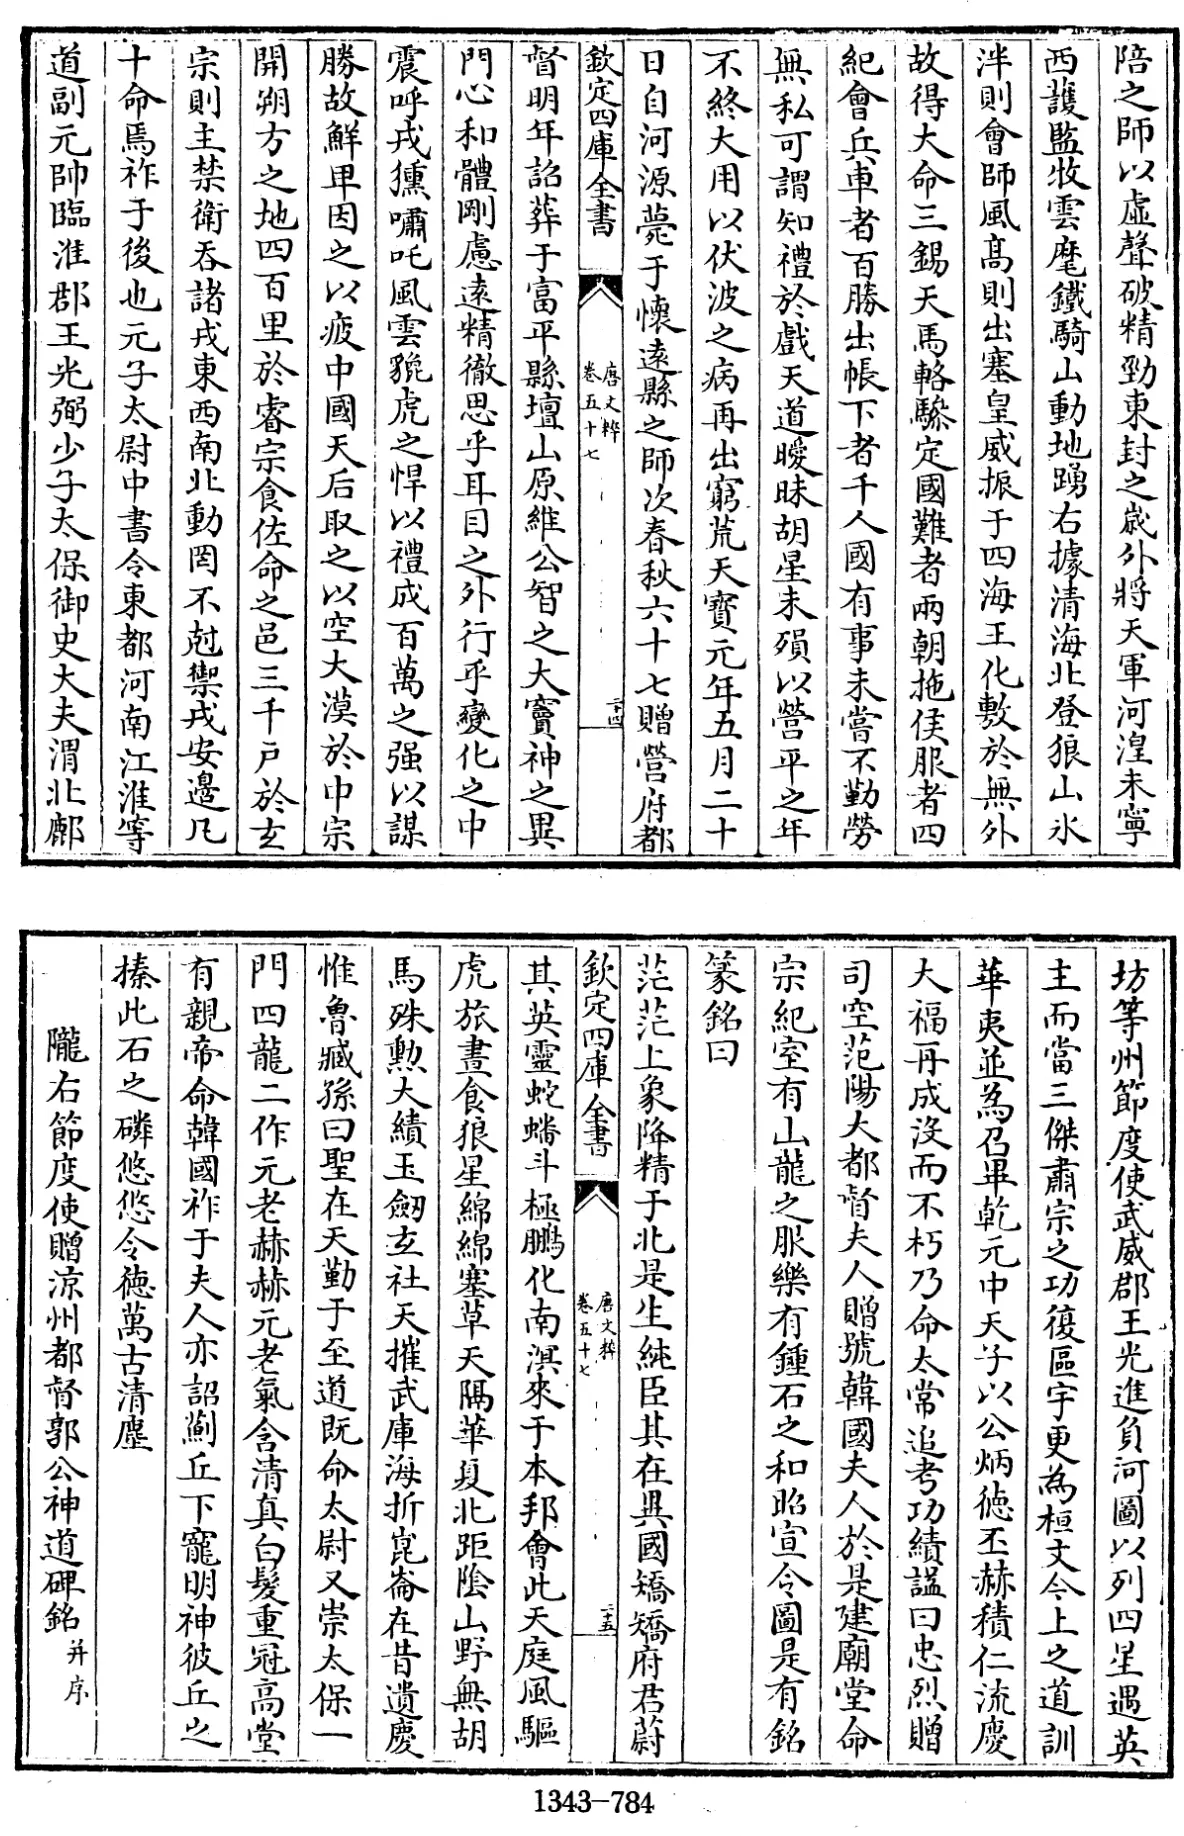 陪之師以虛聲破精勁東封之嵗外將天軍河湟未寧
西䕶監牧雲麾鐵騎山動地踴右據清海北登狼山氷
泮則會師風高則出塞皇威振于四海王化敷於無外
故得大命三錫天馬輅驂定國難者兩朝拖侯服者四
紀會兵車者百勝出帳下者千人國有事未嘗不勤勞
無私可謂知禮於戲天道曖昧胡星未殞以營平之年
不終大用以伏波之病再出窮荒天寶元年五月二十
日自河源薨于懷逺縣之師次春秋六十七贈營府都
欽定四庫全書
唐文粹
卷五十七
二十四
督明年詔葬于富平縣壇山原維公智之大竇神之異
門心和體剛慮逺精徹思乎耳目之外行乎變化之中
震呼戎獯嘯吒風雲貔虎之悍以禮成百萬之强以謀
勝故鮮卑因之以疲中國天后取之以空大漠於中宗
開朔方之地四百里於睿宗食佐命之邑三千戸於玄
宗則主禁衛吞諸戎東西南北動罔不尅禦戎安邊凡
十命焉祚于後也元子太尉中書令東都河南江淮等
道副元帥臨淮郡王光弼少子太保御史大夫渭北鄜
坊等州節度使武威郡王光進負河圖以列四星遇英
主而當三傑肅宗之功復區宇更為桓文今上之道訓
華夷並為召畢乾元中天子以公炳徳丕赫積仁流慶
大福再成沒而不朽乃命太常追考功績諡曰忠烈贈
司空范陽大都督夫人贈號韓國夫人於是建廟堂命
宗紀室有山龍之服樂有鍾石之和昭宣令圖是有銘
篆銘曰
茫茫上象降精于北是生純臣其在異國矯矯府君蔚
欽定四庫全書
唐文粹
卷五十七
二十五
其英靈蛇蟠斗極鵬化南溟來于本邦會此天庭風驅
虎旅晝食狼星綿綿塞草天隔華夏北距陰山野無胡
馬殊勲大績玉劒玄社天摧武庫海折崑崙在昔遺慶
惟魯臧孫曰聖在天勤于至道既命太尉又崇太保一
門四龍二作元老赫赫元老氣含清真白髮重冠高堂
有親帝命韓國祚于夫人亦詔薊丘下寵明神彼丘之
搸此石之磷悠悠令徳萬古清塵
隴右節度使贈涼州都督郭公神道碑銘并序
1343-784